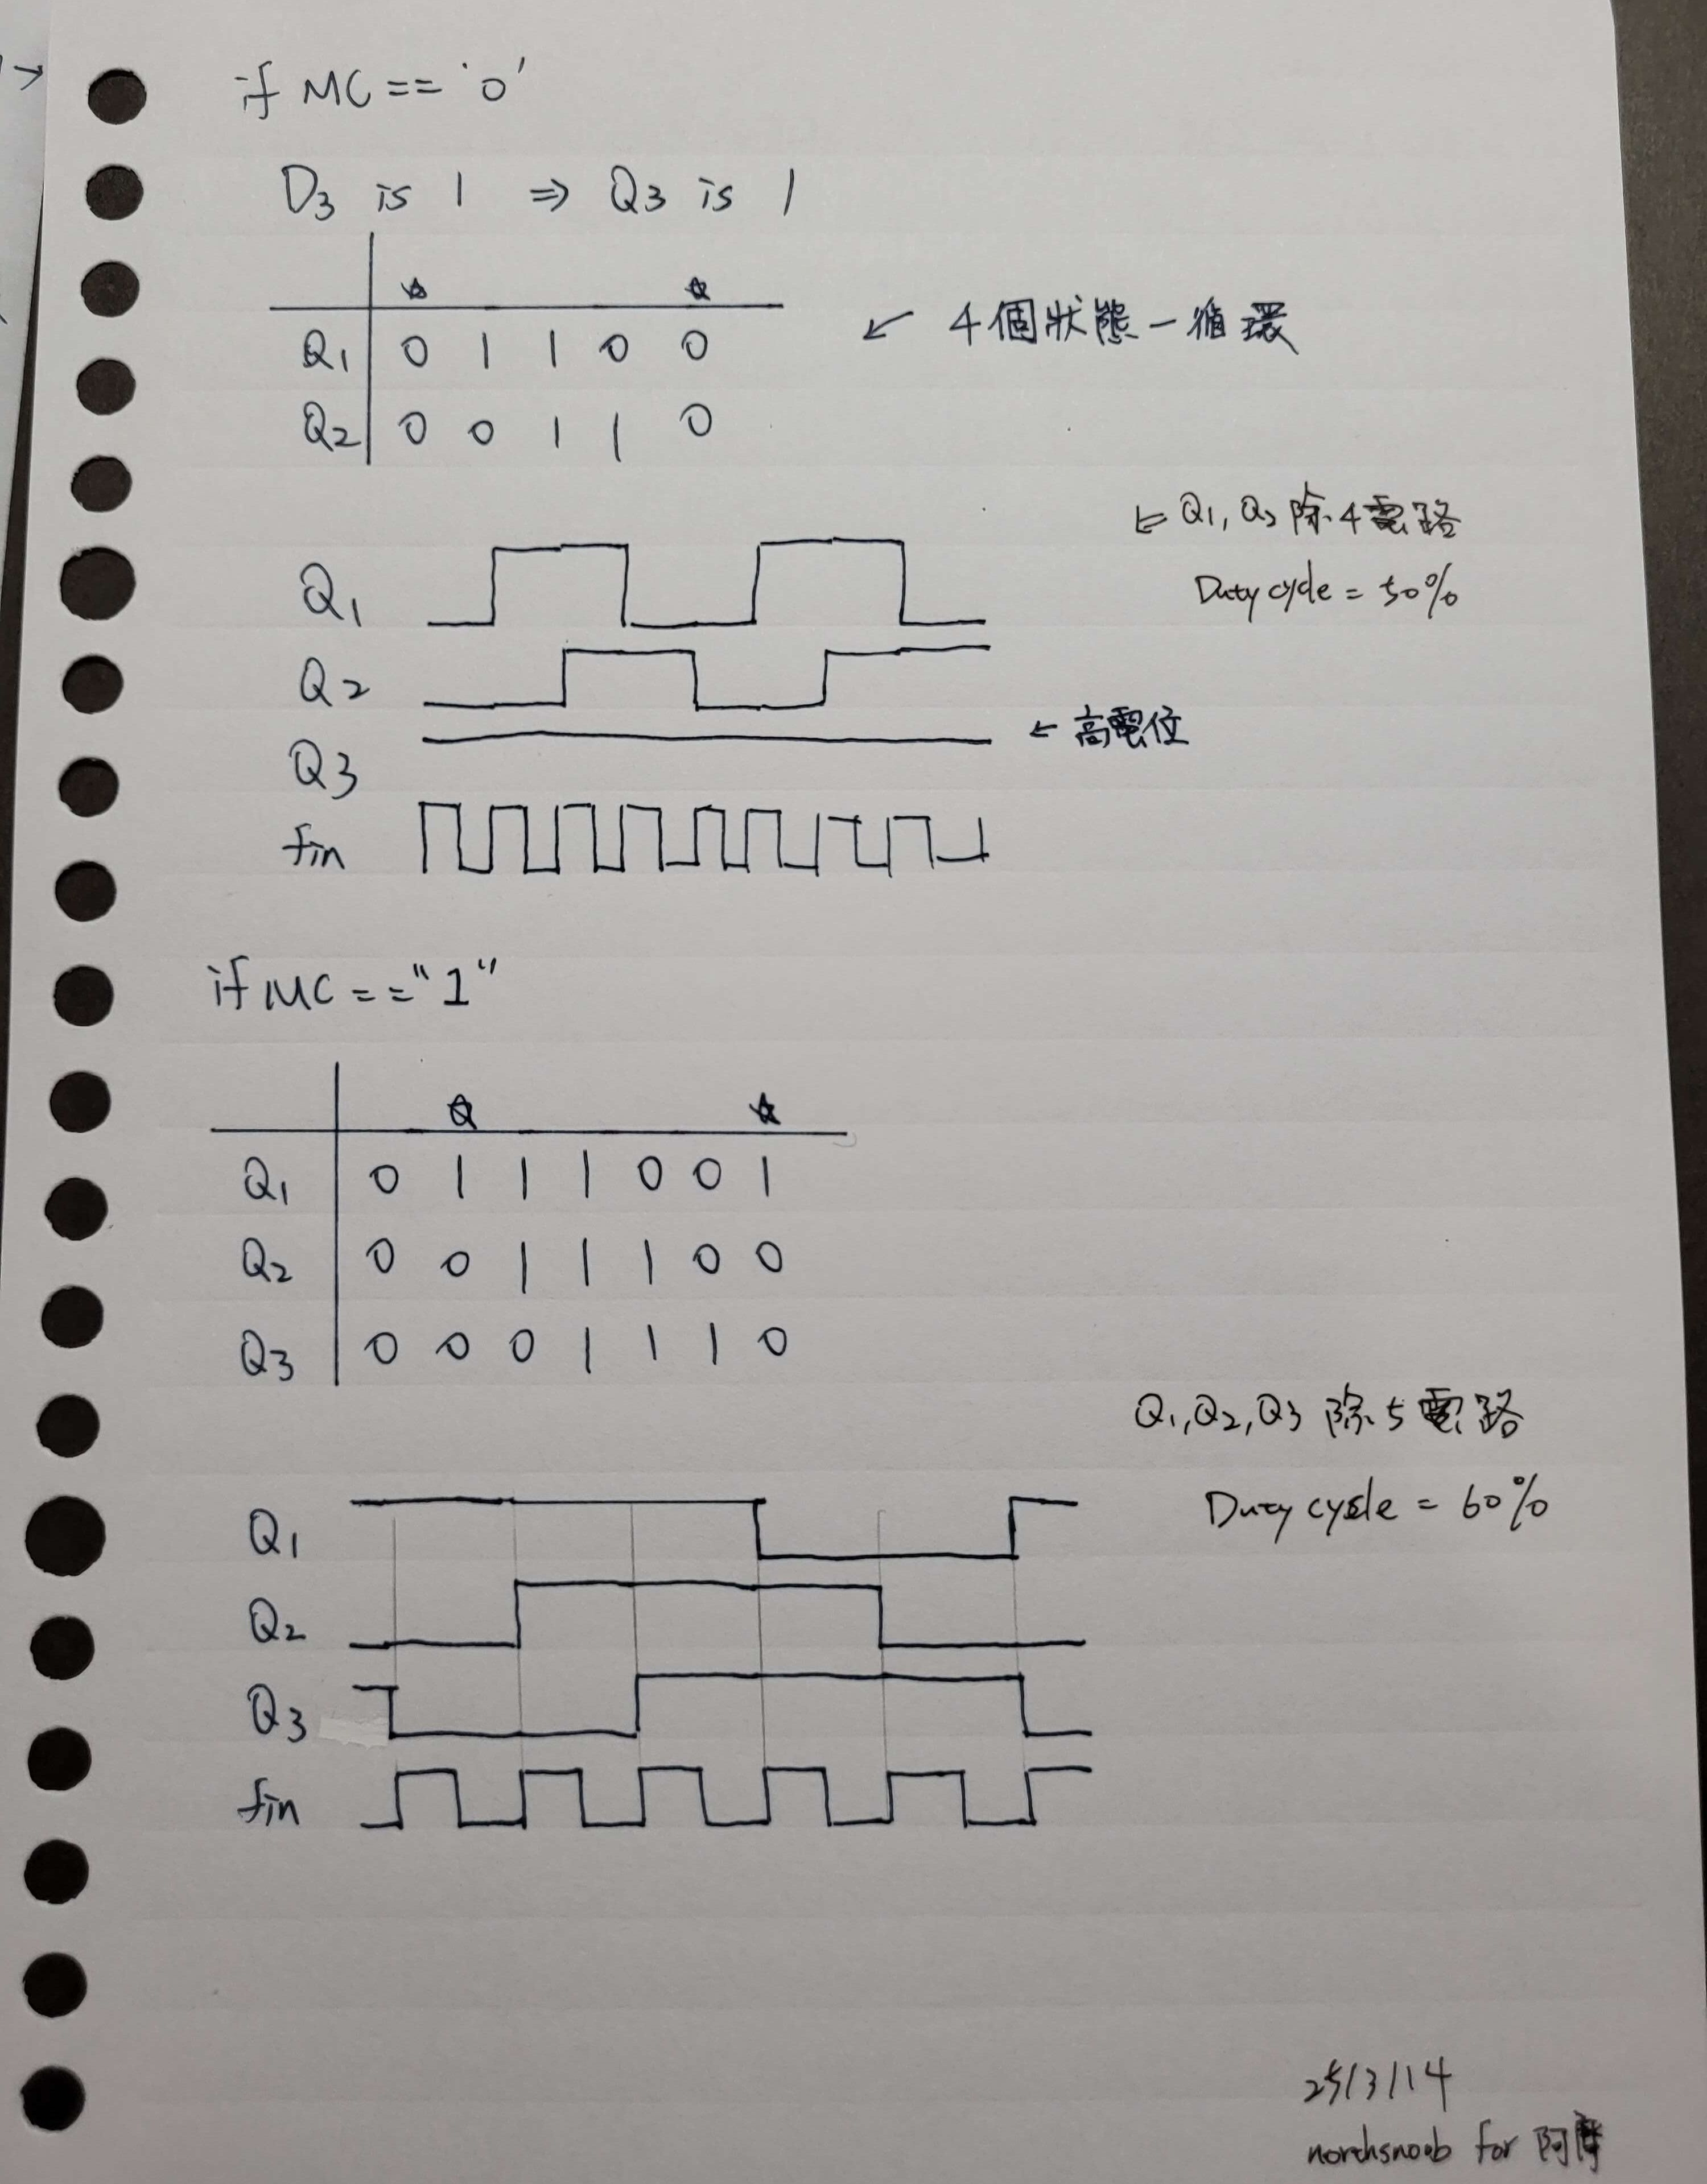 if MC == '0'
D3 is 1 ⇒ Q3 is 1
☆ ☆
Q1 0 1 1 0 0
Q2 0 0 1 1 0
← 4個狀態一循環
⇐ Q1, Q2 除4電路
Duty cycle = 50%
Q1
Q2
Q3
← 高電位
fin
if MC == "1"
☆ ☆
Q1 0 1 1 1 0 0 1
Q2 0 0 1 1 1 0 0
Q3 0 0 0 1 1 1 0
Q1,Q2,Q3 除5電路
Duty cycle = 60%
Q1
Q2
Q3
fin
25/3/14
northsnoob for 阿